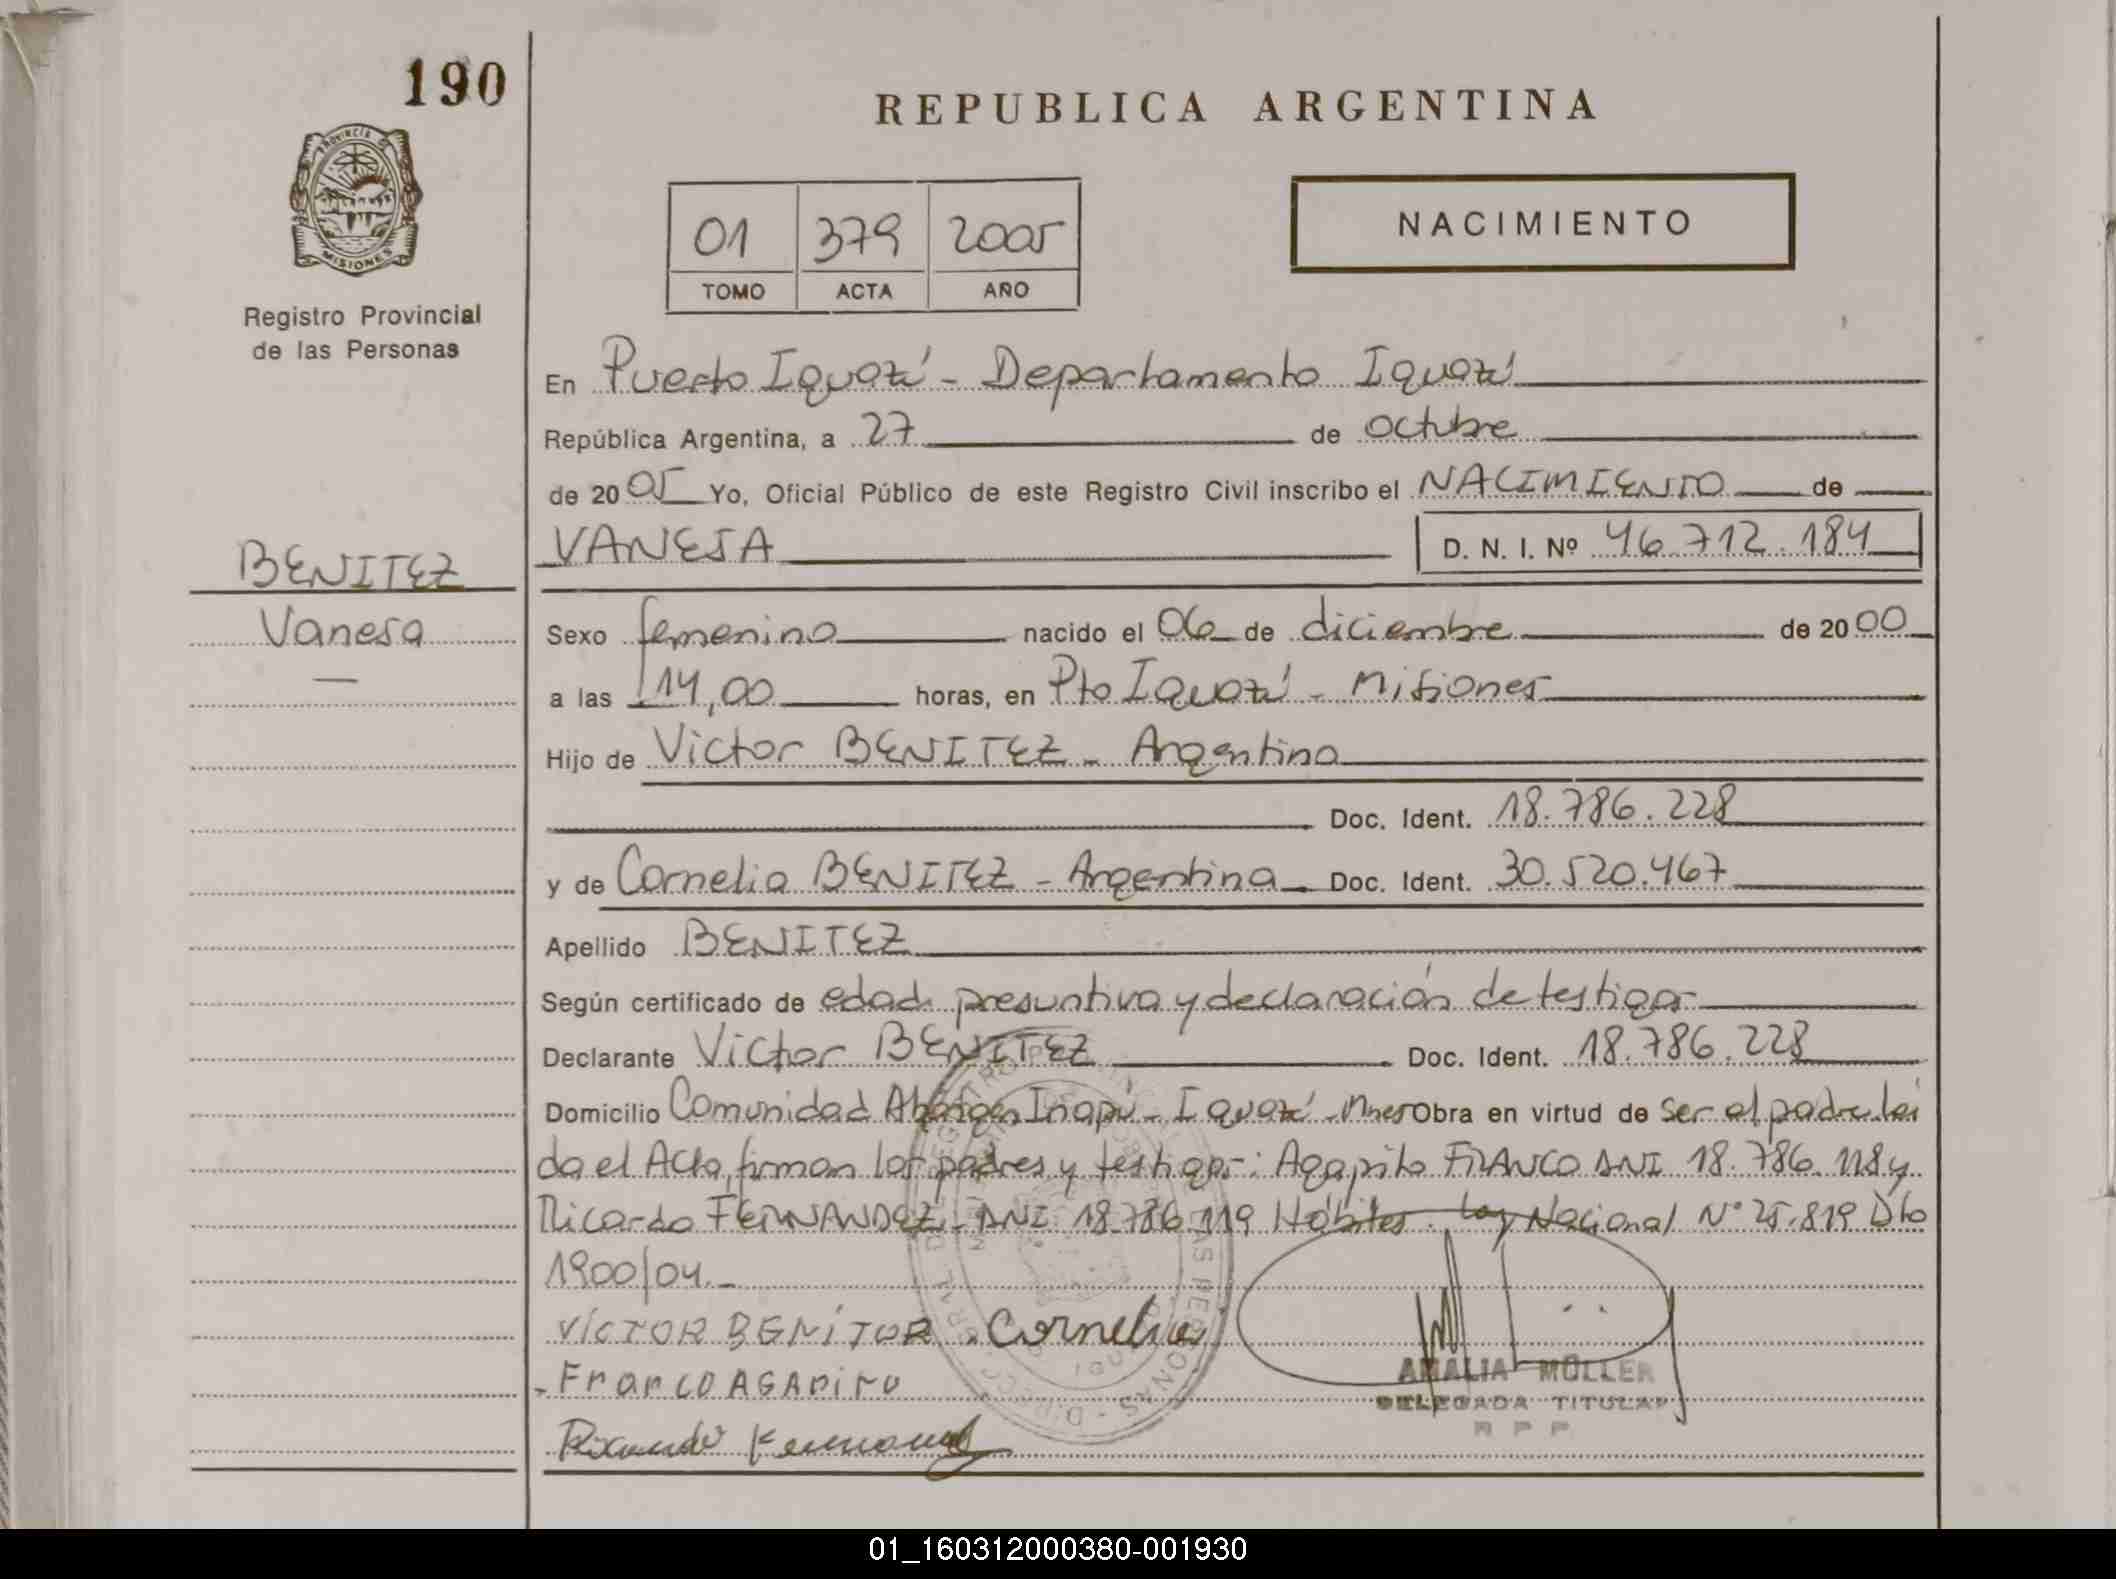 190
REPUBLICA ARGENTINA
PROVINCIA DE
MISIONES
Registro Provincial
de las Personas
01 379 2005
TOMO ACTA AÑO
NACIMIENTO
En Puerto Iguazú - Departamento Iguazú
República Argentina, a 27 de octubre
de 2005 Yo, Oficial Público de este Registro Civil inscribo el NACIMIENTO de
VANESA D. N. I. Nº 46.712.184
BENITEZ
Vanesa
Sexo femenino nacido el 06 de diciembre de 2000
a las 14,00 horas, en Pto Iguazú - Misiones
Hijo de Victor BENITEZ - Argentino
Doc. Ident. 18.786.228
y de Cornelia BENITEZ - Argentina Doc. Ident. 30.520.467
Apellido BENITEZ
Según certificado de edad presuntiva y declaración de testigos
Declarante Victor BENITEZ Doc. Ident. 18.786.228
Domicilio Comunidad Iriapú - Iguazú - Mnes Obra en virtud de ser el padre. Leí
da el Acta, firman los padres y testigos: Agapito FRANCO DNI 18.786.118 y
Ricardo FERNANDEZ - DNI 18.786.119 Hábiles. Ley Nacional Nº 25.819 Dto
1900/04.-
VÍCTOR BENÍTOR . Cornelia
- FrancO AGAPITO
AMALIA MÜLLER
DELEGADA TITULAR
R P P
01_160312000380-001930